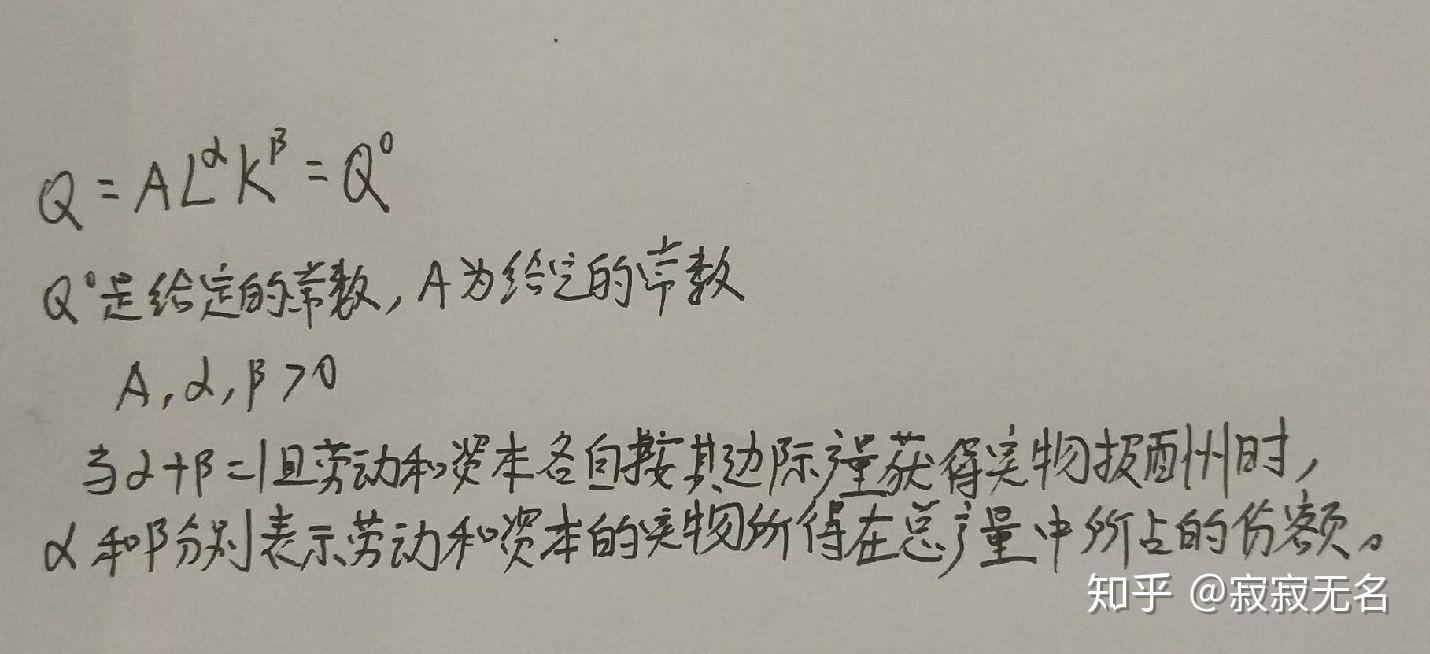 Q = AL^αK^β = Q⁰
Q⁰是给定的常数, A为给定的常数
A, α, β > 0
当α+β=1且劳动和资本各自按其边际产量获得实物报酬时,
α和β分别表示劳动和资本的实物所得在总产量中所占的份额。
知乎 @寂寂无名